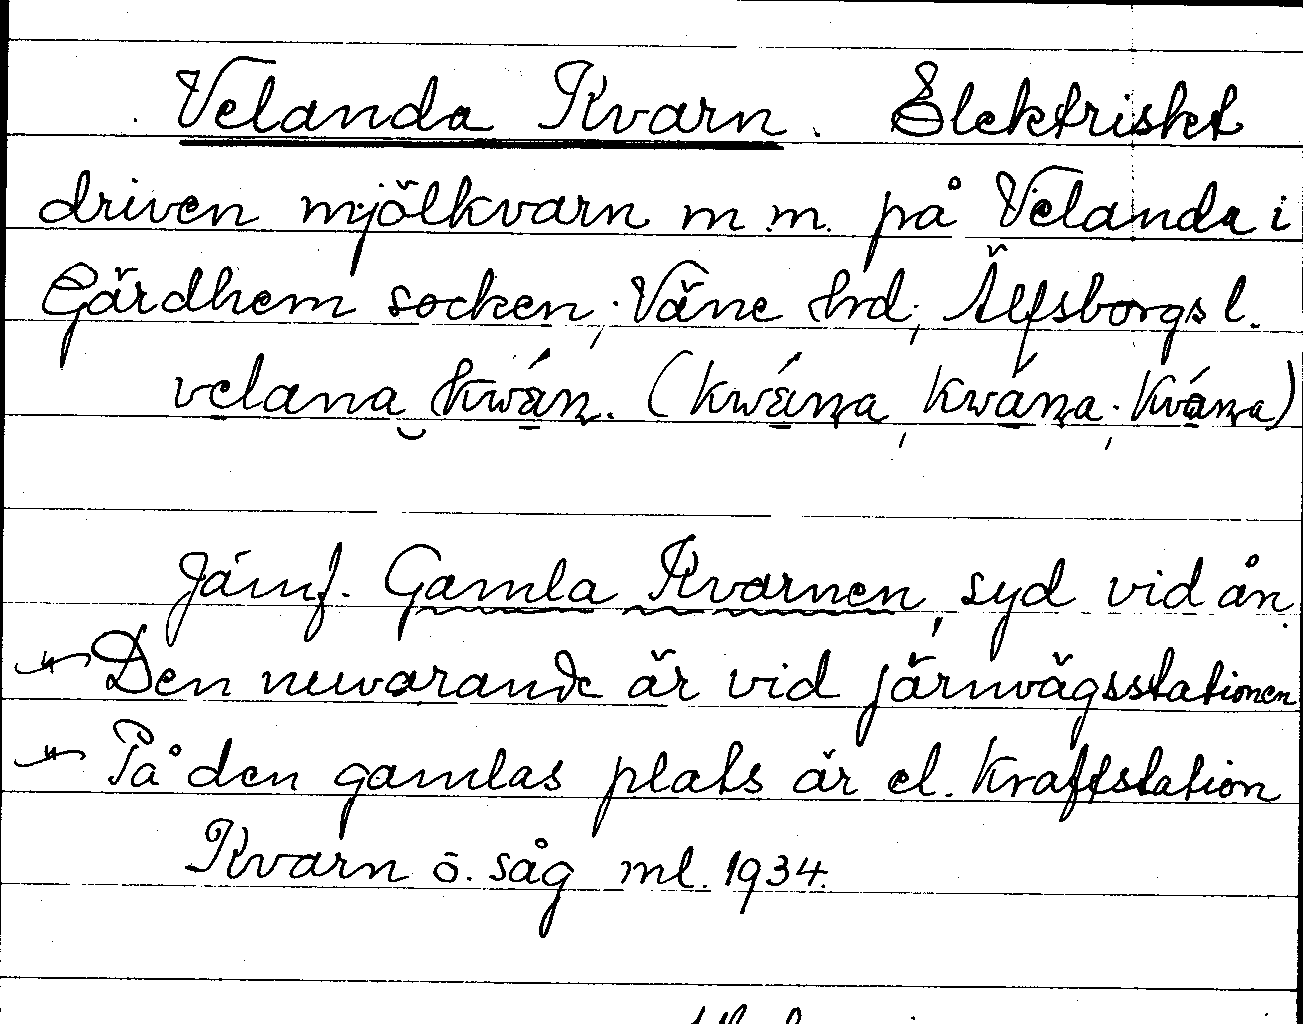 Velanda Kvarn. Elektriskt
driven mjölkvarn m.m. på Velanda i
Gärdhem socken, Väne hrd; Älfsborgs l.
velana kwán. (kwána, kwána; kvána)
Jämf. Gamla Kvarnen, syd vid ån.
" Den nuvarande är vid järnvägsstationen
" På den gamlas plats är el. kraftstation
Kvarn o. såg ml. 1934.